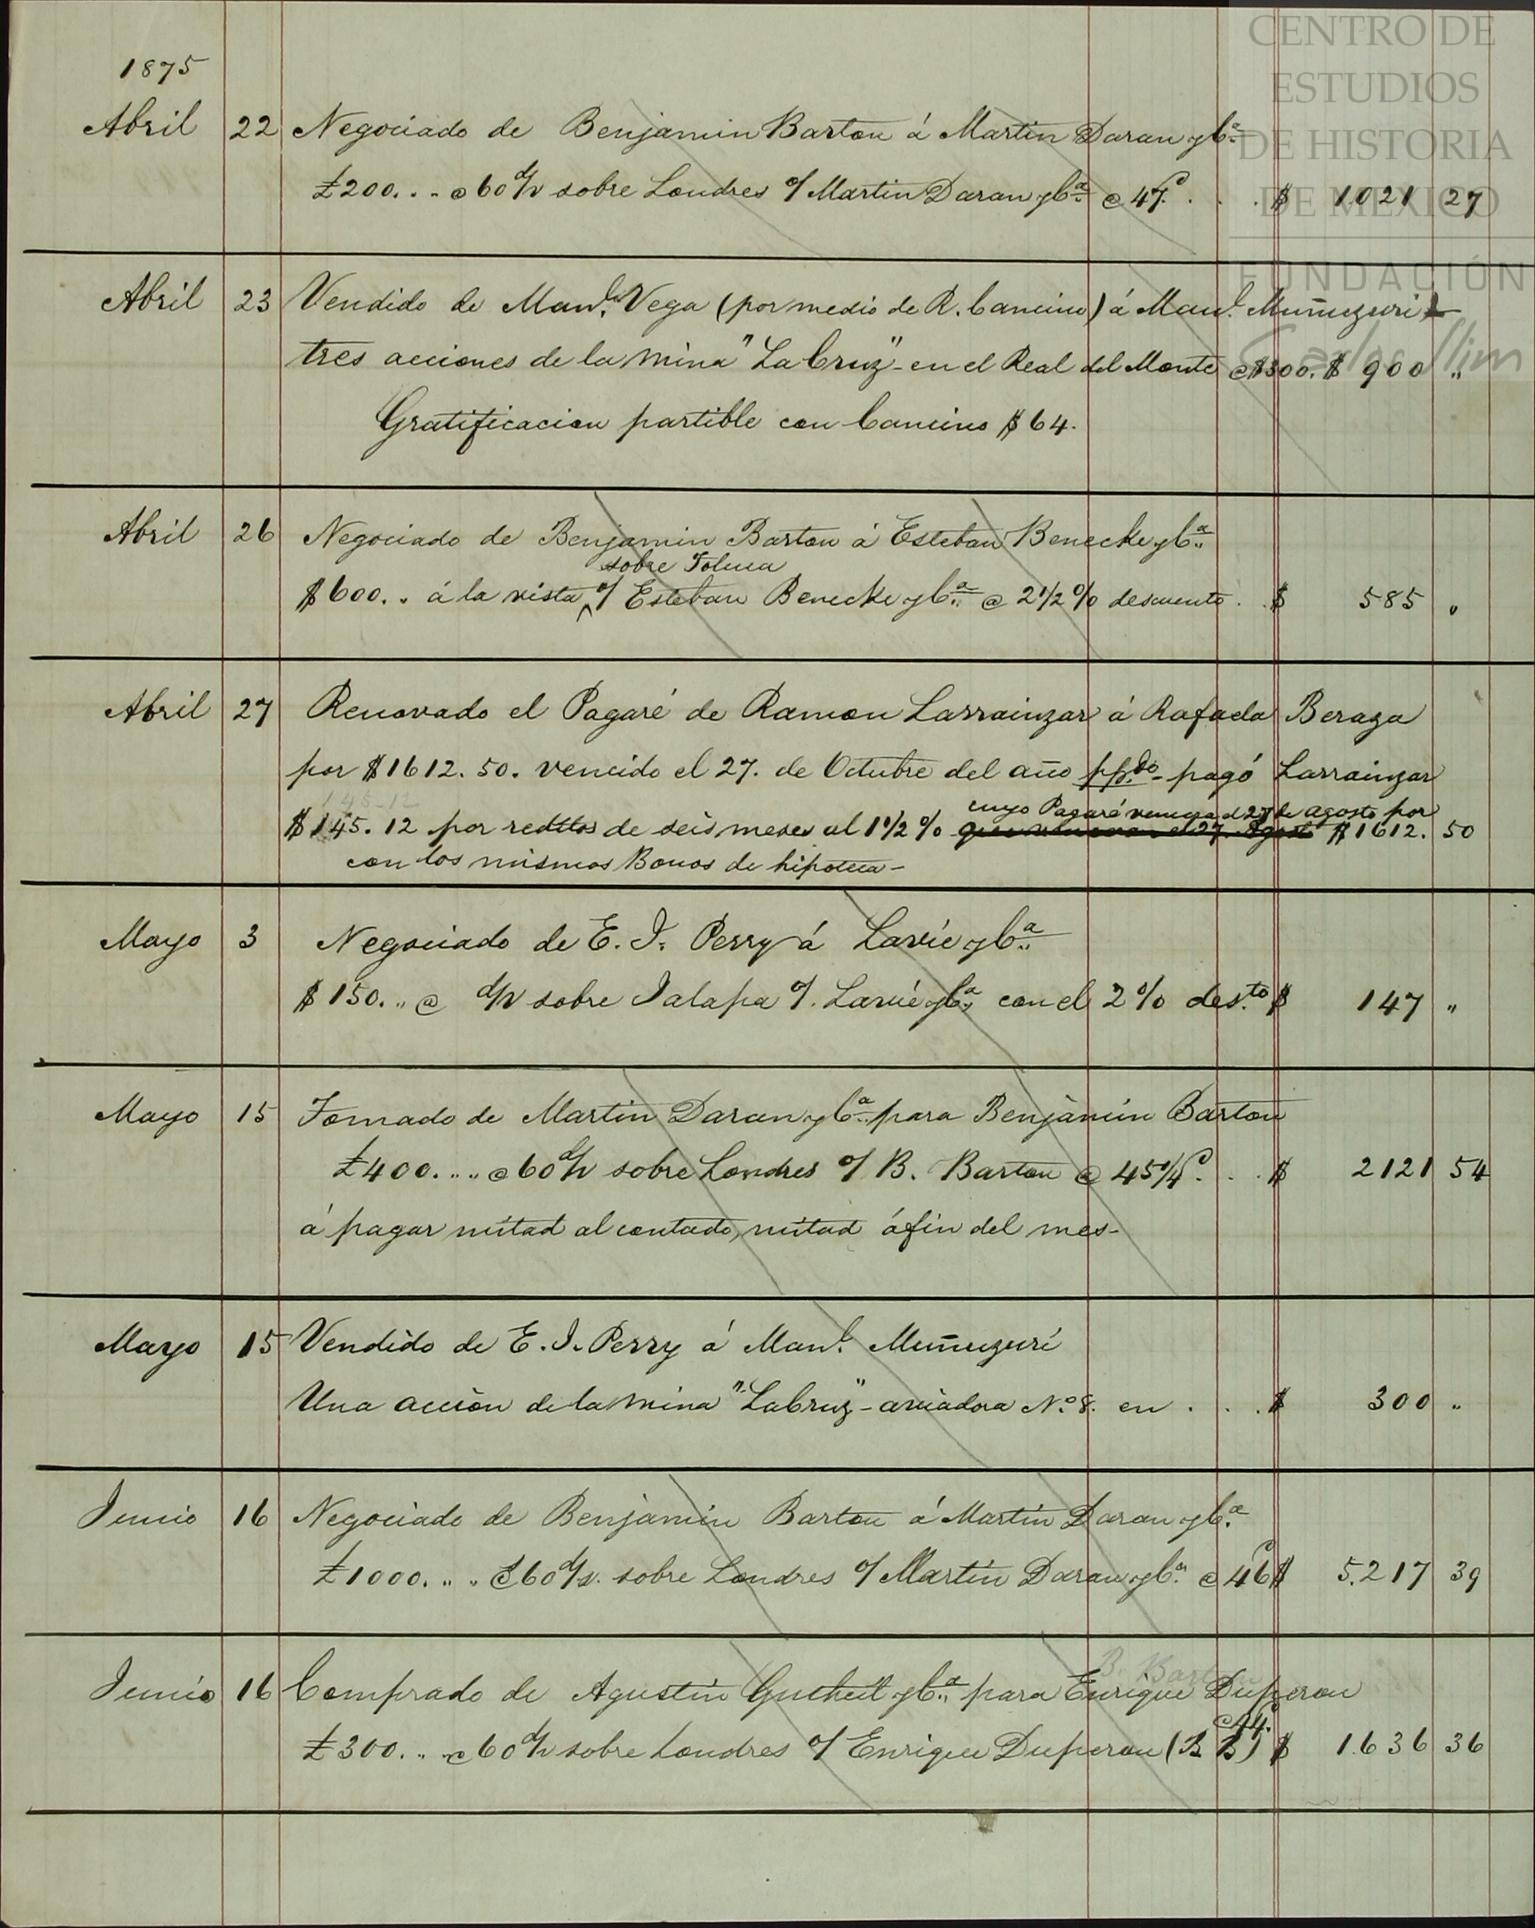 CENTRO DE
ESTUDIOS
DE HISTORIA
DE MÉXICO
FUNDACIÓN
Carlos Slim
1875
Abril 22 Negociado de Benjamin Barton á Martin Daran y Cª
£200. .. @ 60 d/v sobre Londres o/ Martin Daran y Cª @ 47 p. . . . $ 1021 27
Abril 23 Vendido de Manl. Vega (por medio de R. Cancino) á Manl. Muñuzuri
tres acciones de la mina "La Cruz" - en el Real del Monte @ $300. $ 900 "
Gratificacion partible con Cancino $64.
Abril 26 Negociado de Benjamin Barton á Esteban Benecke y Cª
sobre Toluca
$600. .. á la vista o/ Esteban Benecke y Cª @ 2 1/2 % descuento . . $ 585 "
Abril 27 Renovado el Pagaré de Ramon Larrainzar á Rafaela Beraza
por $1612. 50. vencido el 27. de Octubre del año pp.do - pagó Larrainzar
145-12
cuyo Pagaré vencerá el 27 de agosto por
$145. 12 por reditos de seis meses al 1 1/2 % $1612. 50
con los mismos Bonos de hipoteca -
Mayo 3 Negociado de E. J. Perry á Lavie y Cª
$150. " @ d/v sobre Jalapa o/. Lavié y Cª, con el 2 % des.to $ 147 "
Mayo 15 Tomado de Martin Daran y Cª para Benjamin Barton
£400. .. .. @ 60 d/v sobre Londres o/ B. Barton @ 45 1/4 p. . . $ 2121 54
á pagar mitad al contado, mitad á fin del mes -
Mayo 15 Vendido de E. J. Perry á Manl. Muñuzuri
Una acción de la mina "La Cruz" - aviadora No. 8. en . . . $ 300 "
Junio 16 Negociado de Benjamin Barton á Martin Daran y Cª
£1000. .. .. @ 60 d/v. sobre Londres o/ Martin Daran y Cª @ 46 p $ 5.217 39
B. Barton
Junio 16 Comprado de Agustin Gutheil y Cª para Enrique Duperon
@ 44 p.
£300. .. .. @ 60 d/v sobre Londres o/ Enrique Duperon (B B) $ 1.636 36